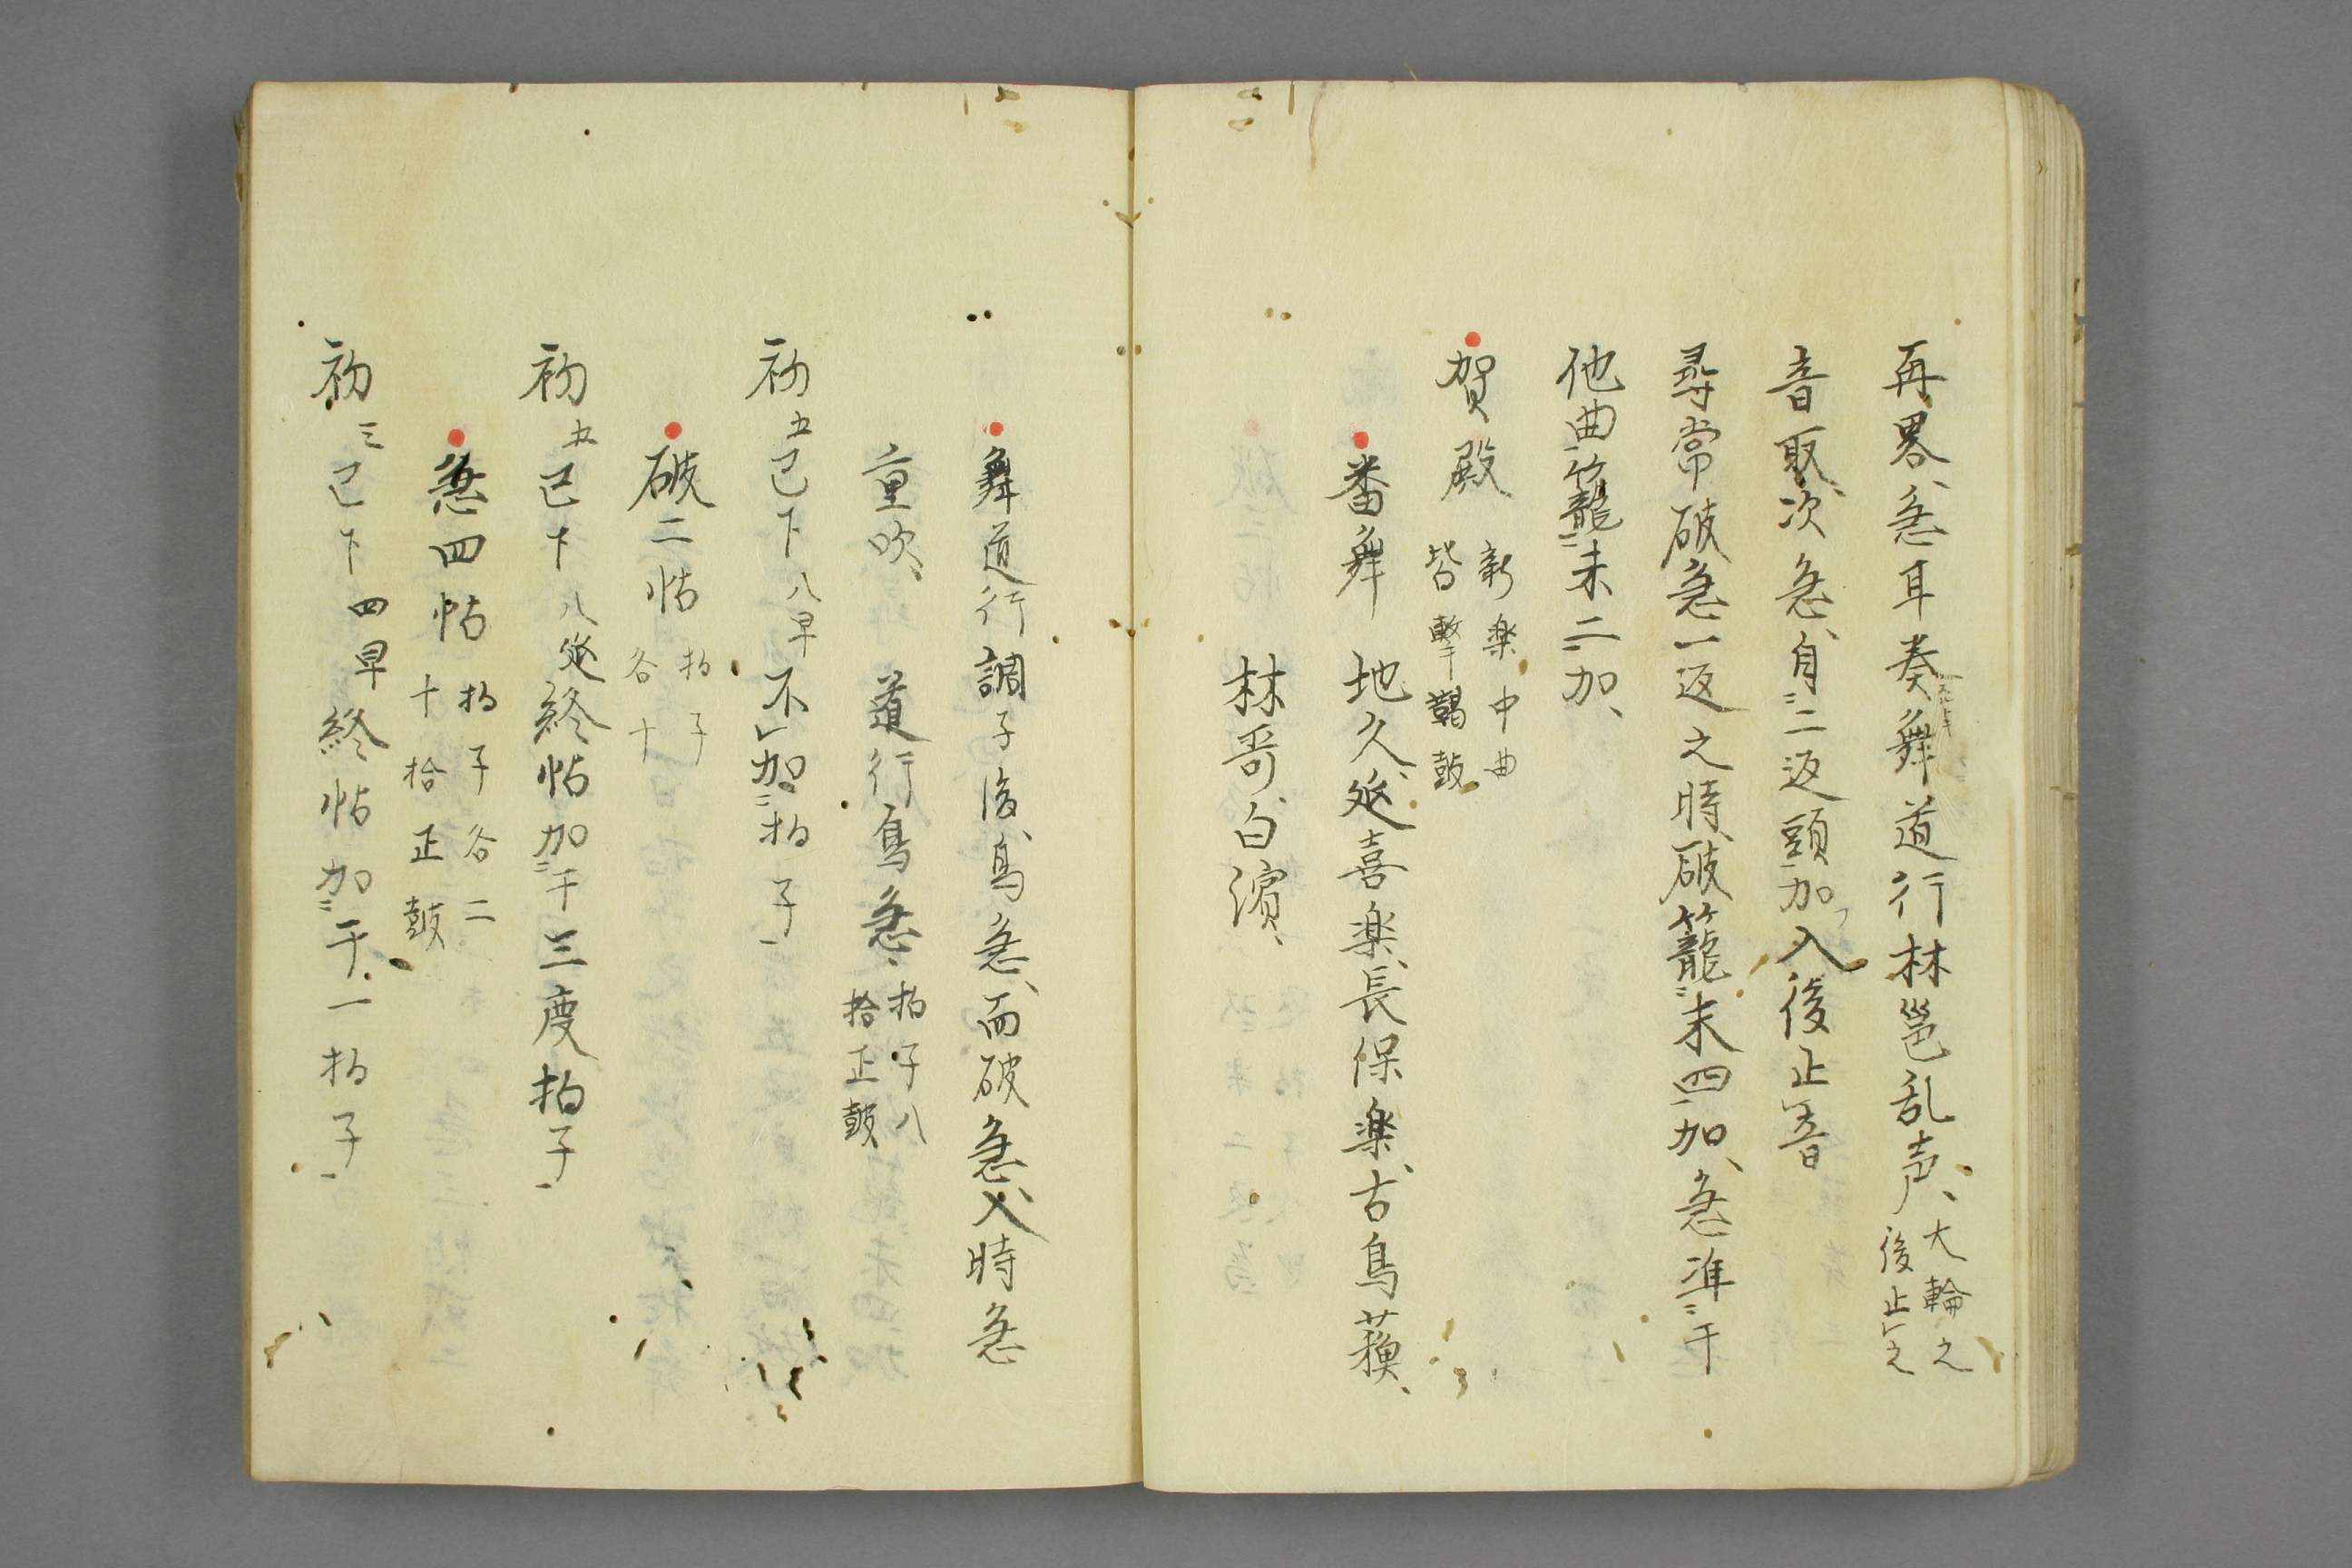 再畧、急耳奏舞道行林邕乱声、大輪之
後止㆑之
音取、次急、自ニ二返頭加入後止音
尋常破急一返之時、破籠ニ末四加、急准ニ于
他曲籠ニ末二加、
賀殿 新楽中曲
皆撃鞨鼓
番舞 地久、延喜楽、長保楽、古鳥蘓、
林哥、白濱、
舞道行調子後、鳥急、而破急、入時急
重吹、道行鳥急、拍子八
拾正鼓
初五已下八早不㆑加ニ拍子
破二帖 拍子
各十
初五已下八延終帖加ニ于三度拍子
急四帖 拍子各二
十拾正鼓
初三已下四早終帖加ニ于一拍子